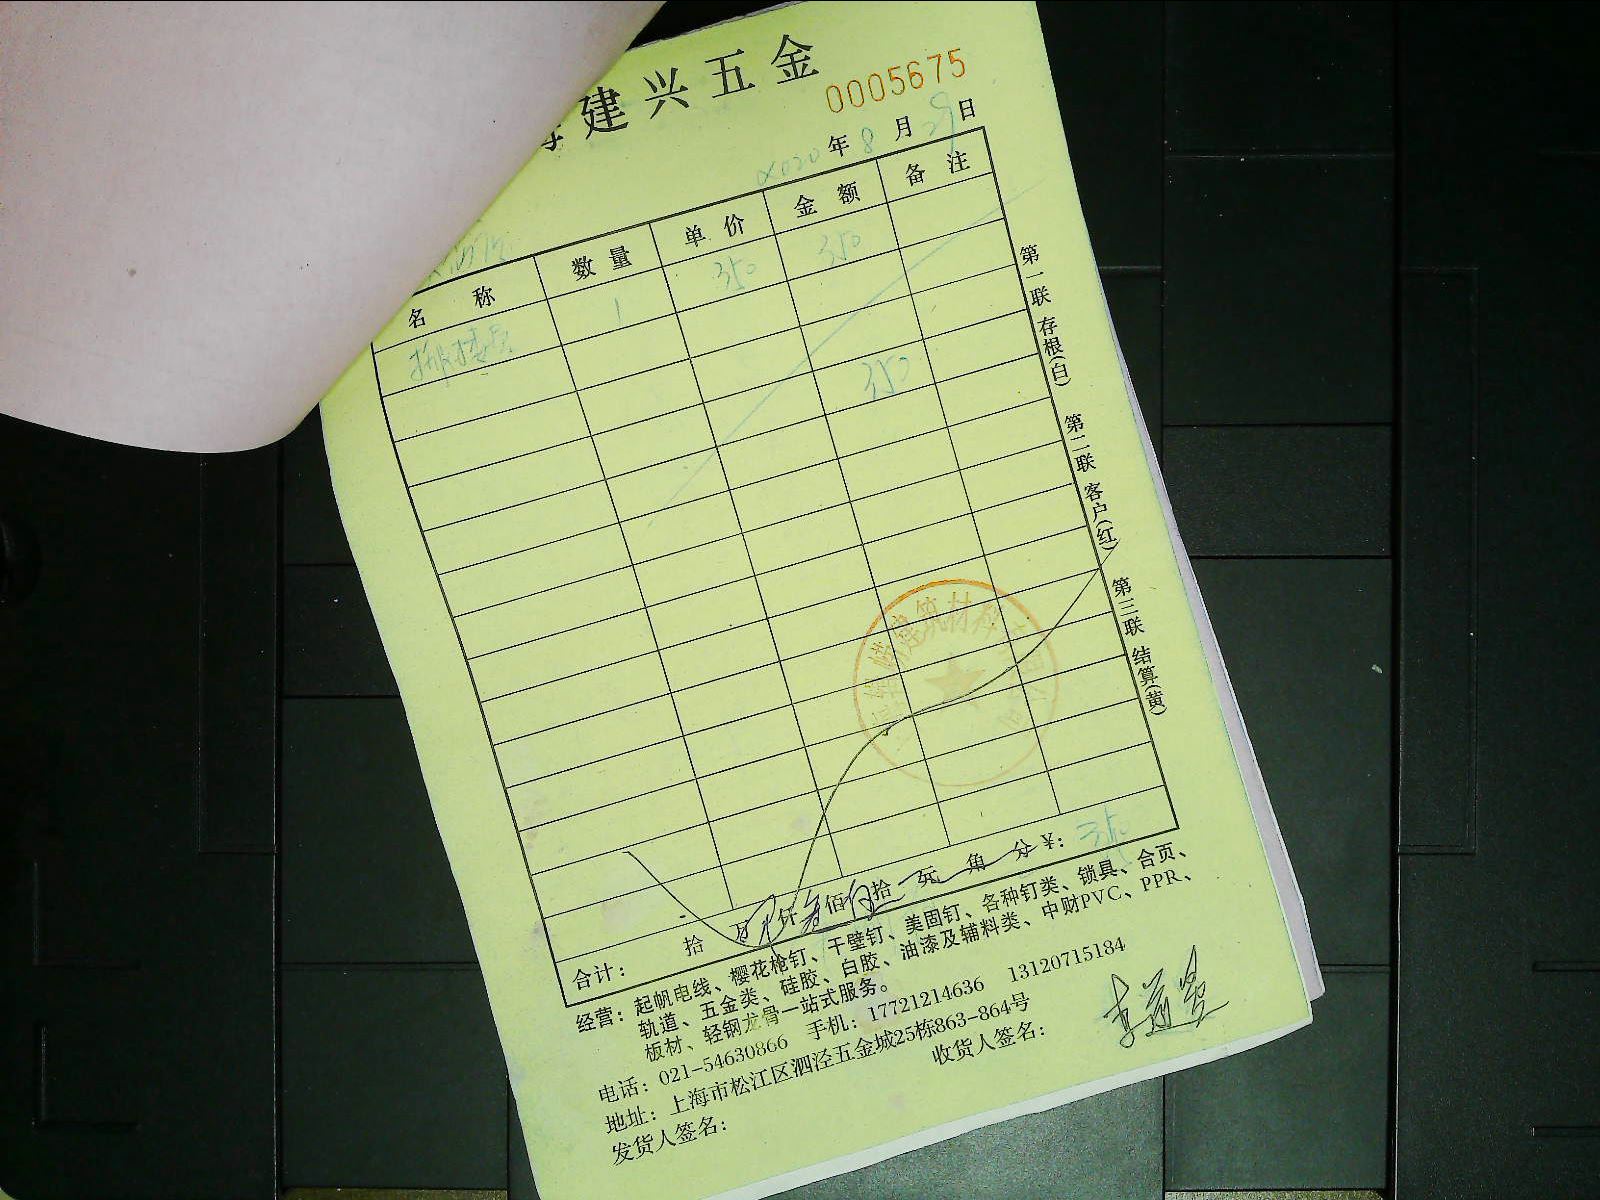 建兴五金
0005675
2020年8月29日
名称 数量 单价 金额 备注
1 350 350
350
第一联 存根(白) 第二联 客户(红) 第三联 结算(黄)
合计： 拾 万 仟 佰 拾 元 角 分 ¥：350
经营：起帆电线、樱花枪钉、干壁钉、美固钉、各种钉类、锁具、合页、
轨道、五金类、硅胶、白胶、油漆及辅料类、中财PVC、PPR、
板材、轻钢龙骨一站式服务。
电话：021-54630866 手机：17721214636 13120715184
地址：上海市松江区泗泾五金城25栋863-864号
发货人签名： 收货人签名：